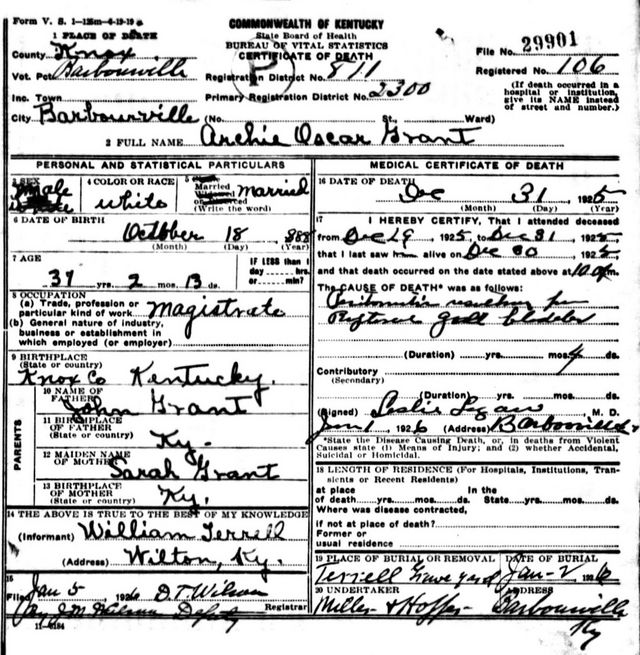 Form V. S. 1—125m—6-19-19
COMMONWEALTH OF KENTUCKY
State Board of Health
BUREAU OF VITAL STATISTICS
CERTIFICATE OF DEATH
1 PLACE OF DEATH
County Knox
Vot. Pct. Barbourville
Inc. Town
City Barbourville (No. St., Ward)
F
Registration District No. 811
Primary Registration District No. 2300
File No. 29901
Registered No. 106
(If death occurred in a
hospital or institution,
give its NAME instead
of street and number.)
2 FULL NAME Archie Oscar Grant
PERSONAL AND STATISTICAL PARTICULARS
3 SEX
male
4 COLOR OR RACE
white
5
Married
(Write the word)
married
6 DATE OF BIRTH
October 18 888
(Month) (Day) (Year)
7 AGE
37 yrs. 2 mos. 13 ds.
IF LESS than 1
day hrs.
or min.?
8 OCCUPATION
(a) Trade, profession or
particular kind of work magistrate
(b) General nature of industry,
business or establishment in
which employed (or employer)
9 BIRTHPLACE
(State or country)
Knox Co Kentucky.
PARENTS
10 NAME OF
FATHER
John Grant
11 BIRTHPLACE
OF FATHER
(State or country)
Ky.
12 MAIDEN NAME
OF MOTHER
Sarah Grant
13 BIRTHPLACE
OF MOTHER
(State or country)
Ky.
14 THE ABOVE IS TRUE TO THE BEST OF MY KNOWLEDGE
(Informant) William Terrell
(Address) Wilton, Ky.
15
Filed Jan 5 1926 D.T. Wilson
Registrar
Deputy
11—6184
MEDICAL CERTIFICATE OF DEATH
16 DATE OF DEATH
Dec 31 1925
(Month) (Day) (Year)
17 I HEREBY CERTIFY, That I attended deceased
from Dec 29, 1925, to Dec 31, 1925
that I last saw h alive on Dec 30 1925
and that death occurred on the date stated above at 10
The CAUSE OF DEATH* was as follows:
Peritonitis
gall bladder
(Duration) yrs. mos. 4 ds.
Contributory
(Secondary)
(Duration) yrs. mos. ds.
(Signed) Leslie Logan M. D.
Jan 1 1926 (Address) Barbourville
*State the Disease Causing Death, or, in deaths from Violent
Causes state (1) Means of Injury; and (2) whether Accidental,
Suicidal or Homicidal.
18 LENGTH OF RESIDENCE (For Hospitals, Institutions, Tran-
sients or Recent Residents)
at place In the
of death yrs. mos. ds. State yrs. mos. ds.
Where was disease contracted,
if not at place of death?
Former or
usual residence
19 PLACE OF BURIAL OR REMOVAL
Terrell Grave yard
DATE OF BURIAL
Jan-2 1926
20 UNDERTAKER
Miller & Hopper
ADDRESS
Barbourville
Ky